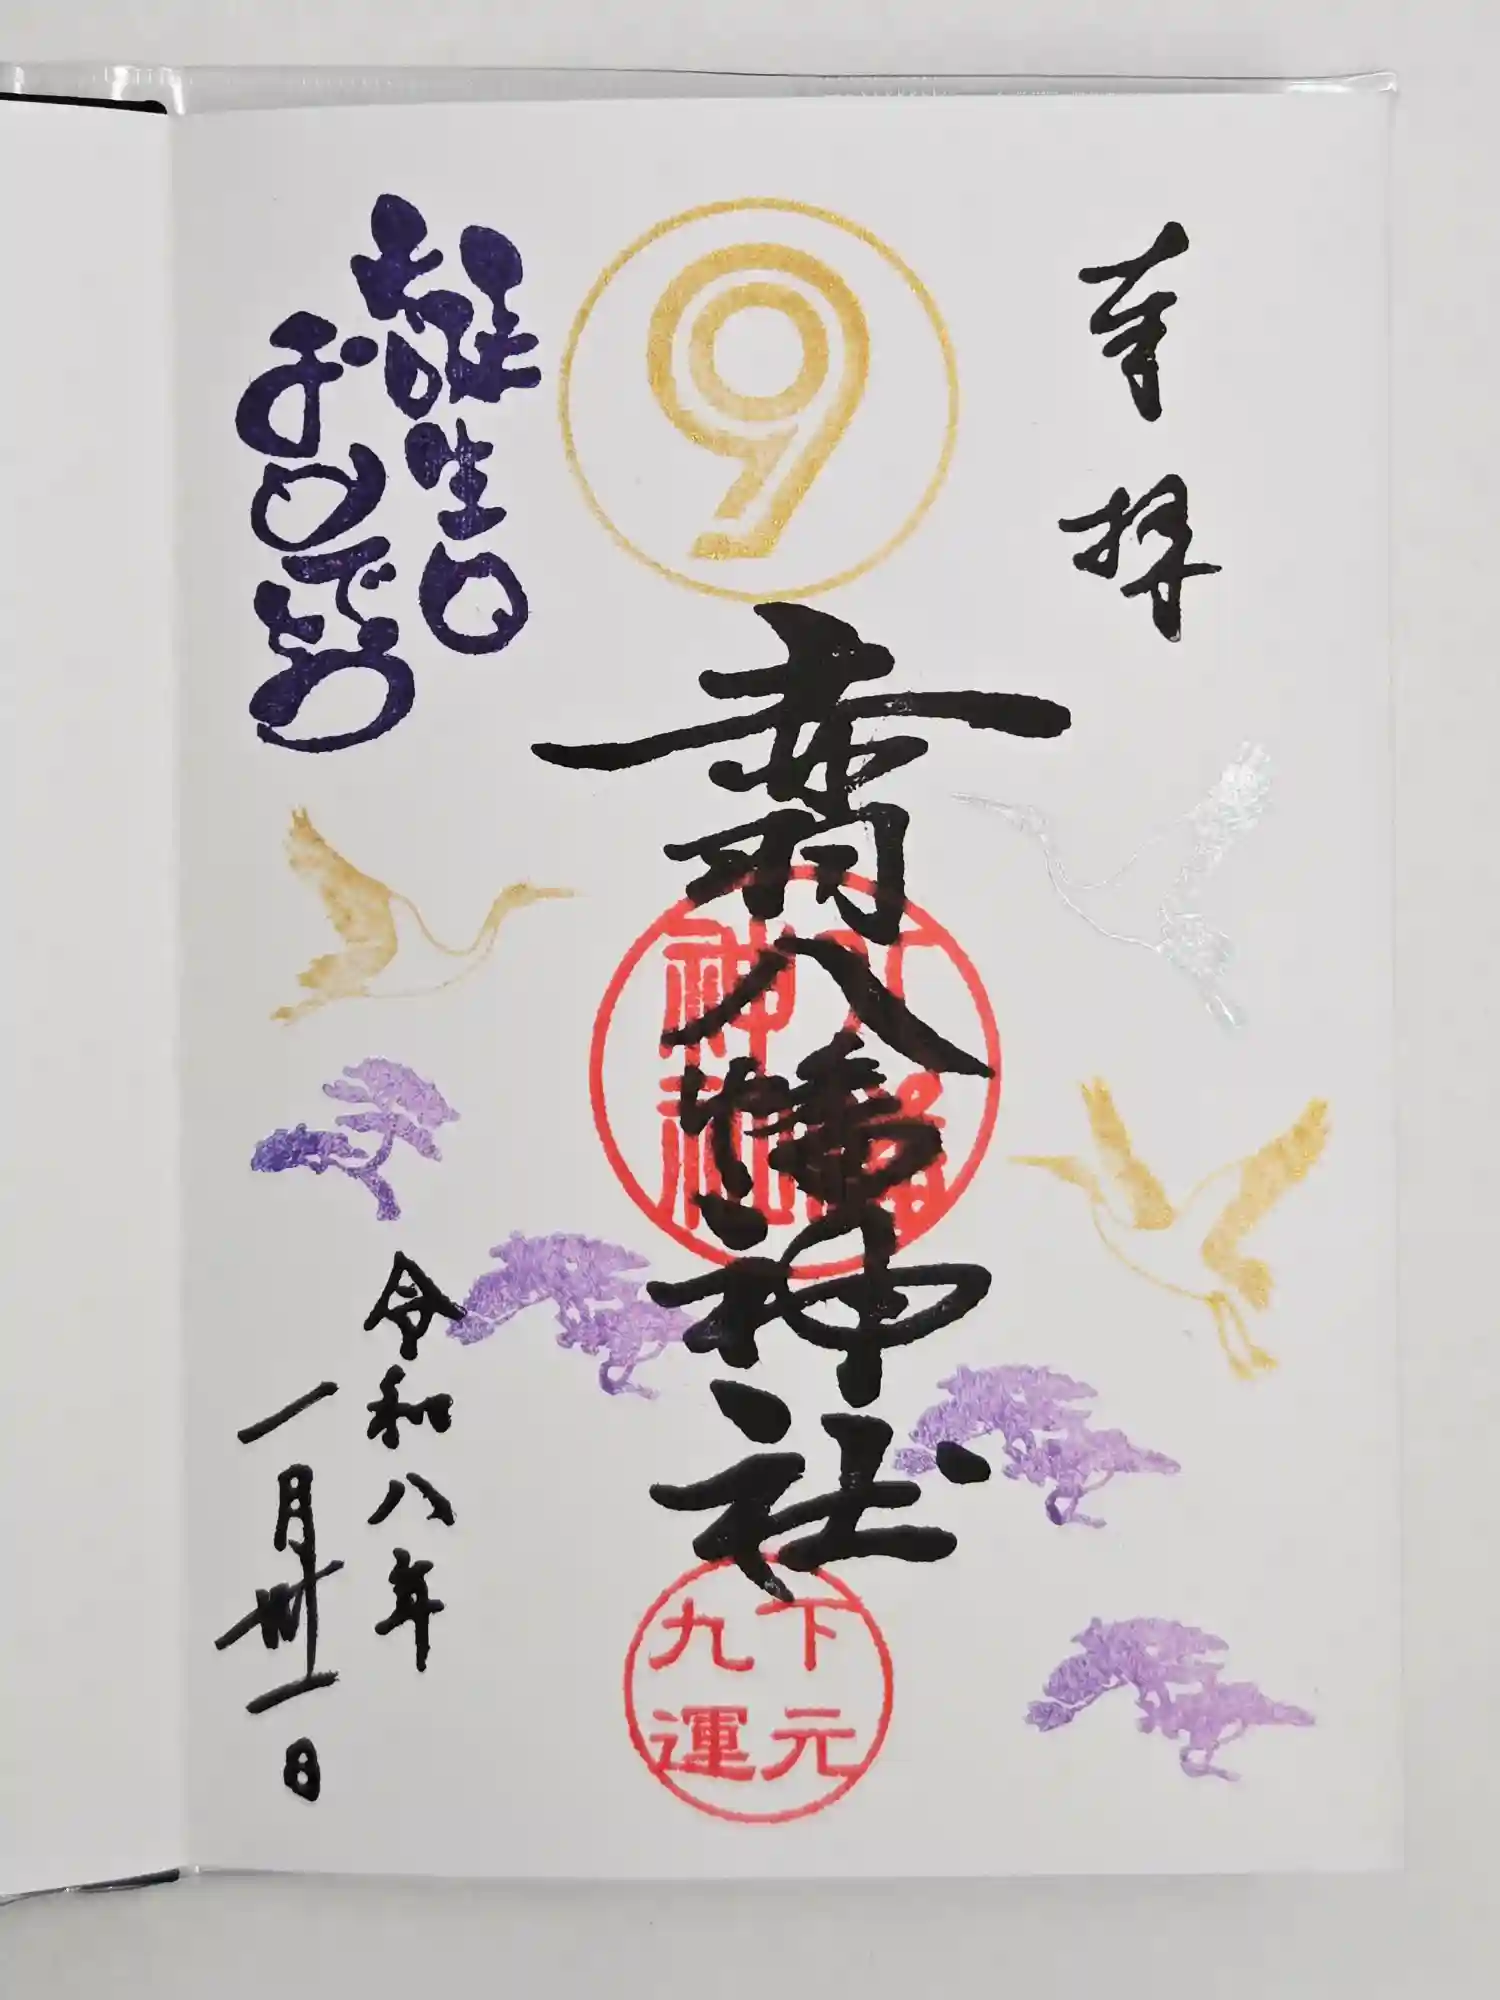 奉拝
9
赤羽八幡神社
八幡
神社
下元
九運
お誕生日
おめでとう
令和八年
一月卅一日